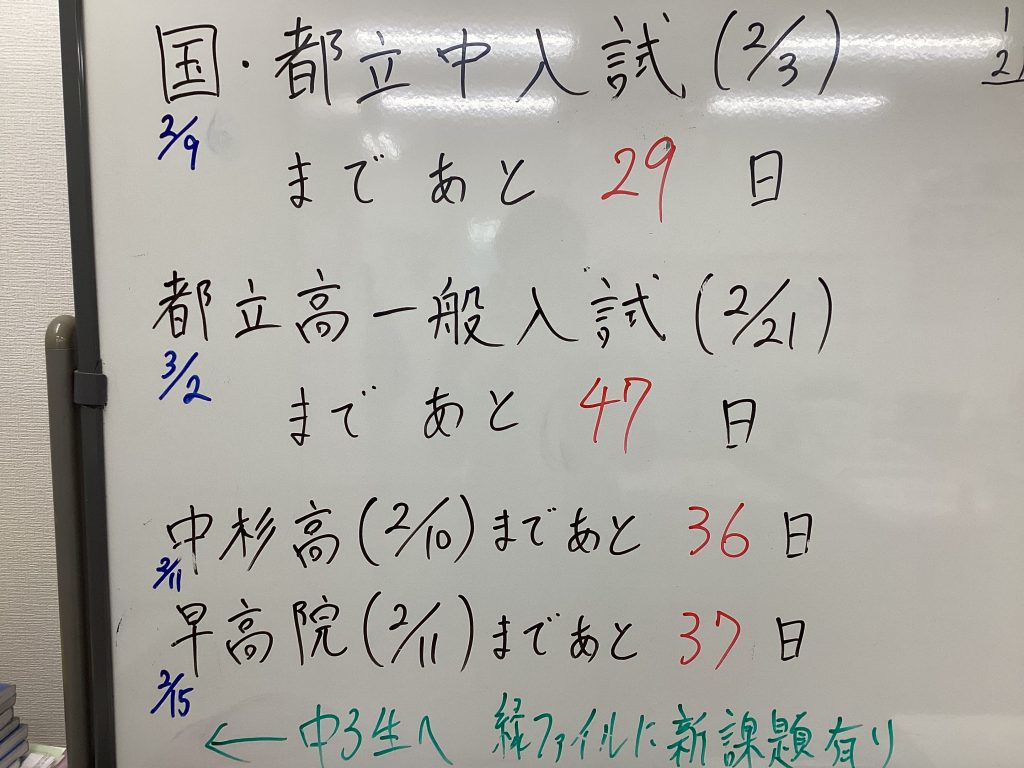 国・都立中入試(2/3)
2/9
まであと 29 日
都立高一般入試(2/21)
3/2
まであと 47 日
中杉高(2/10)まであと 36 日
2/11
早高院(2/11)まであと 37 日
2/15
← 中3生へ 緑ファイルに新課題有り